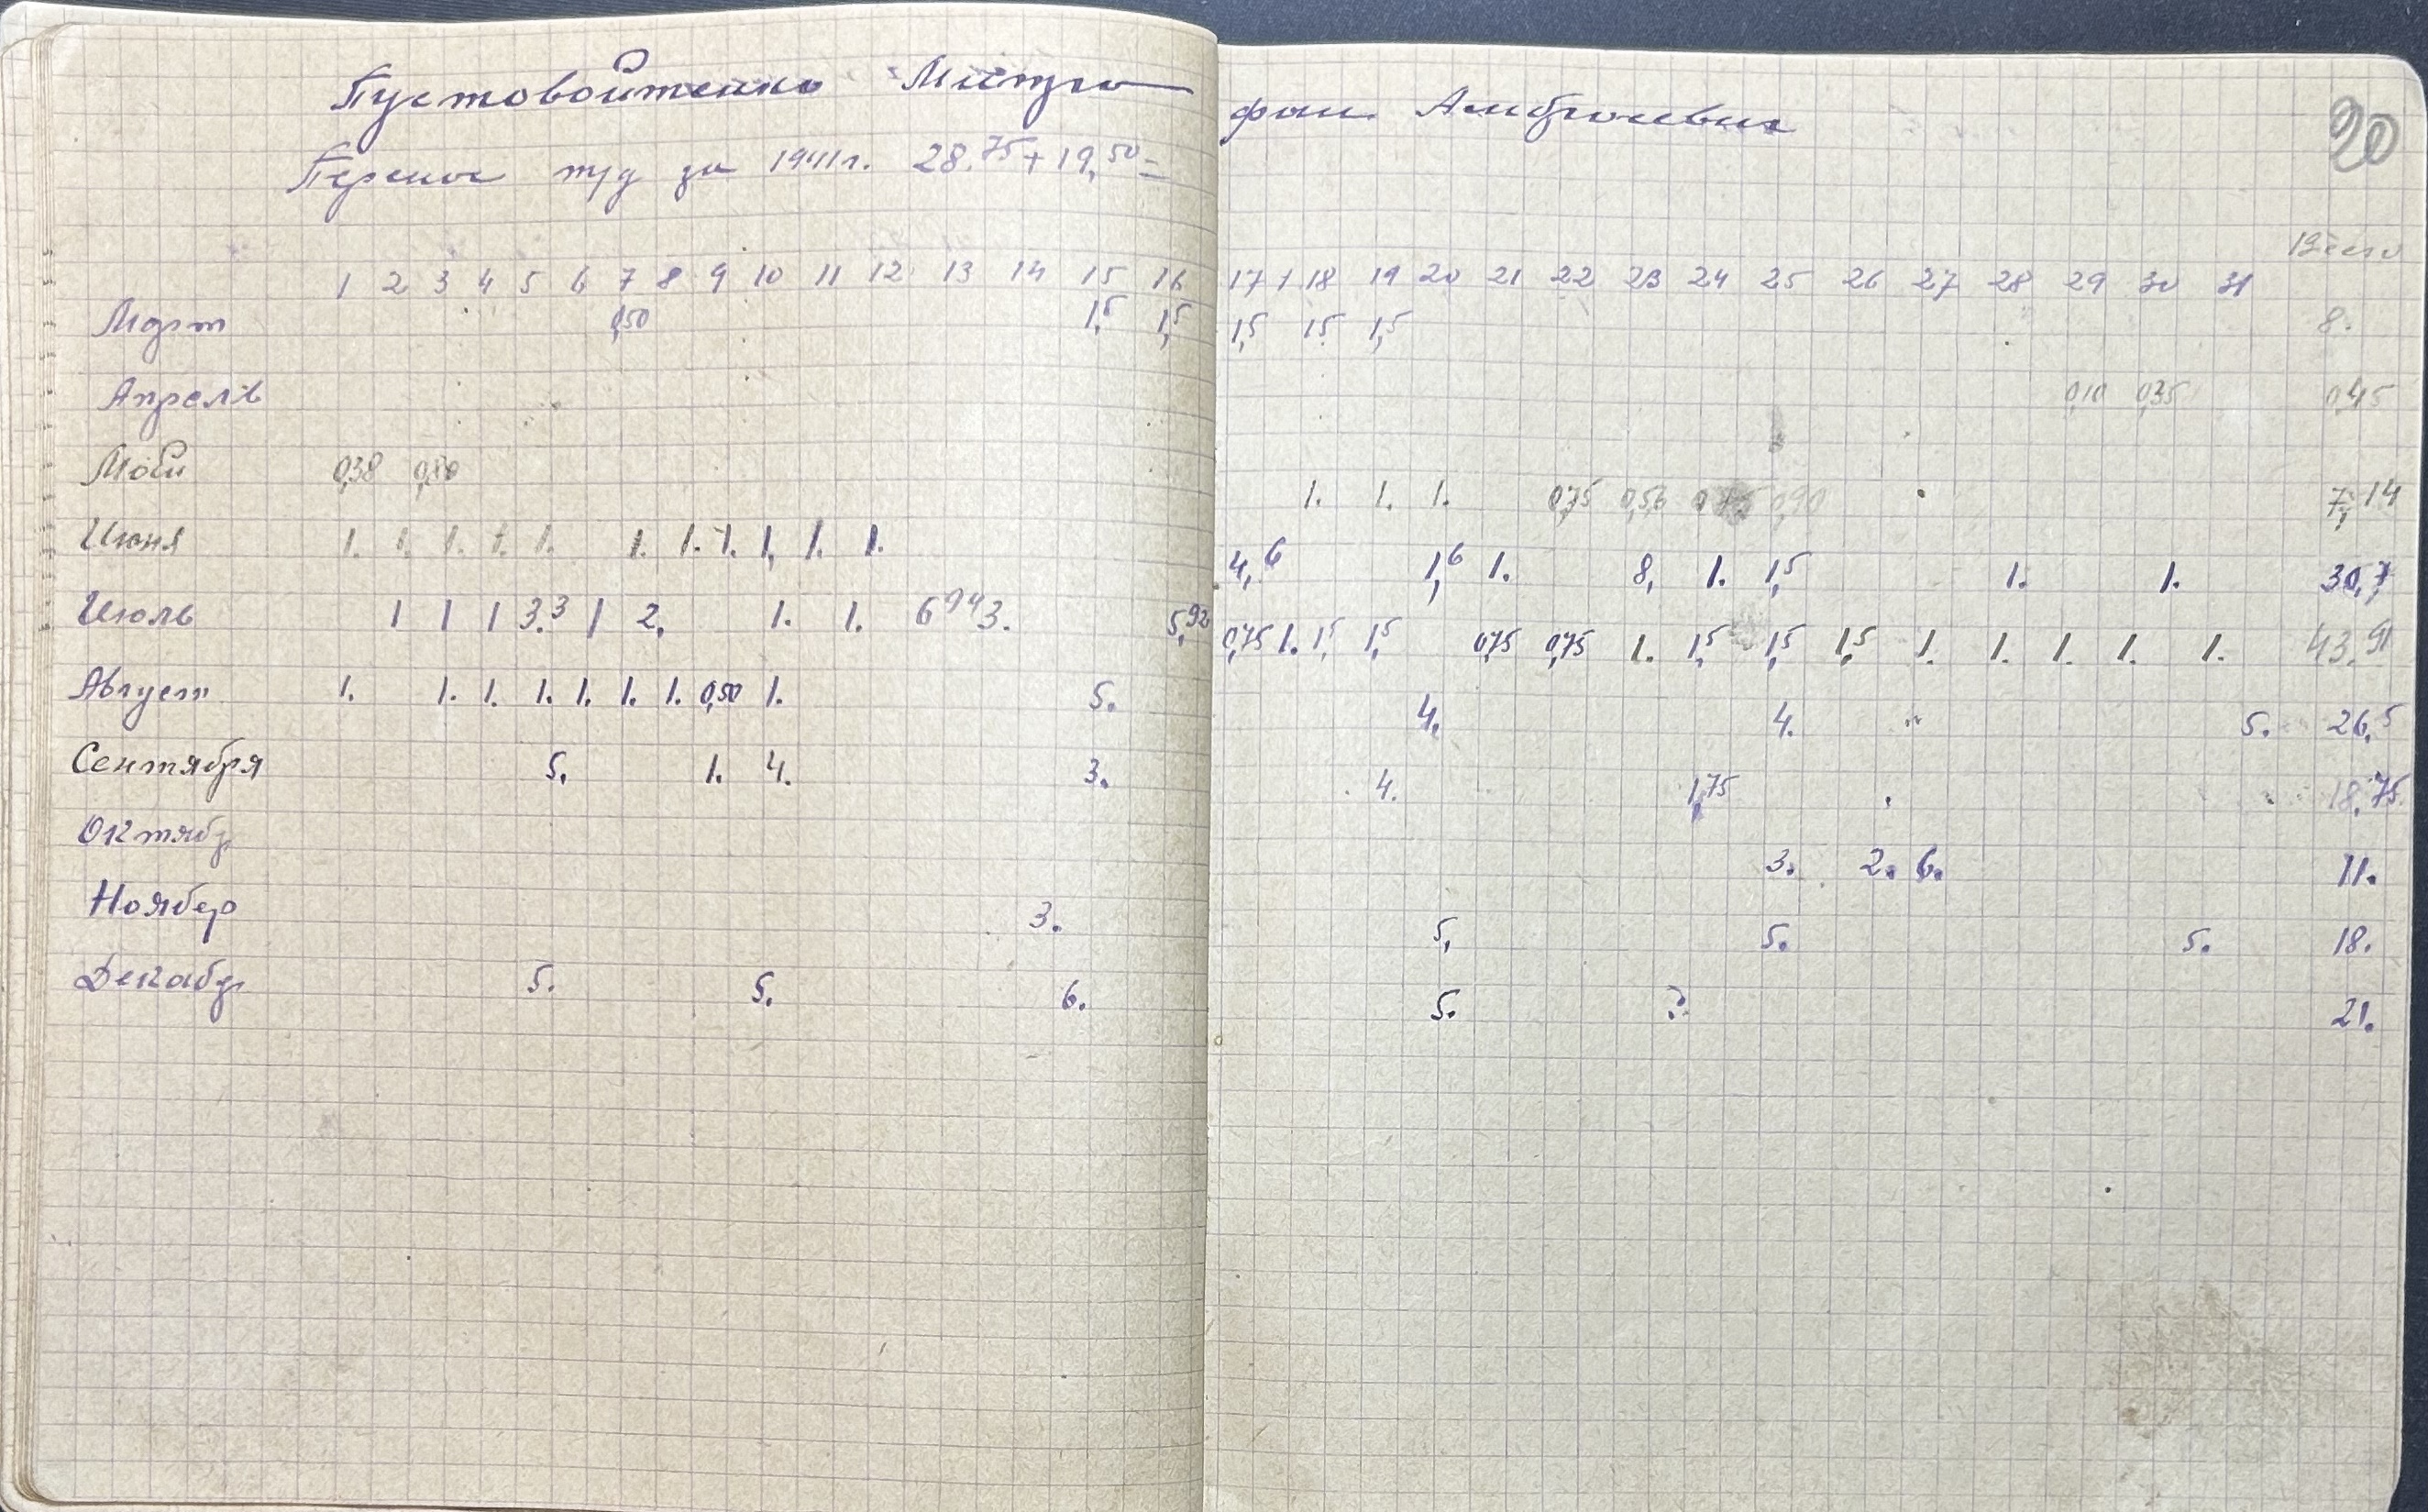 20
Пустовойтенко Митрофан Амбросиевич
Перенос т/д за 1941г. 28.75 + 19,50 =
1 2 3 4 5 6 7 8 9 10 11 12 13 14 15 16 17 18 19 20 21 22 23 24 25 26 27 28 29 30 31 Всего
Март 0,50 1,5 1,5 1,5 1,5 1,5 8.
Апрель 0,10 0,35 0,45
0,38 0,80 1. 1. 1. 0,75 0,56 0,90 7,14
Июня 1. 1. 1. 1. 1. 1. 1. 1. 1, 1. 1. 4,6 1,6 1. 8, 1. 1,5 1. 1. 30,7
Июль 1 1 1 3.3 1 2, 1. 1. 6 94 3. 5,92 0,75 1. 1,5 1,5 0,75 0,75 1. 1,5 1,5 1,5 1. 1. 1. 1. 1. 43.91
Август 1. 1. 1. 1. 1. 1. 1. 0,50 1. 5. 4. 4. " 5. 26,5
Сентября 5. 1. 4. 3. 4. 1,75 18,75
Октябр 3. 2. 6. 11.
Ноябер 3. 5, 5. 5. 18.
Декабр 5. 5. 6. 5. ? 21.